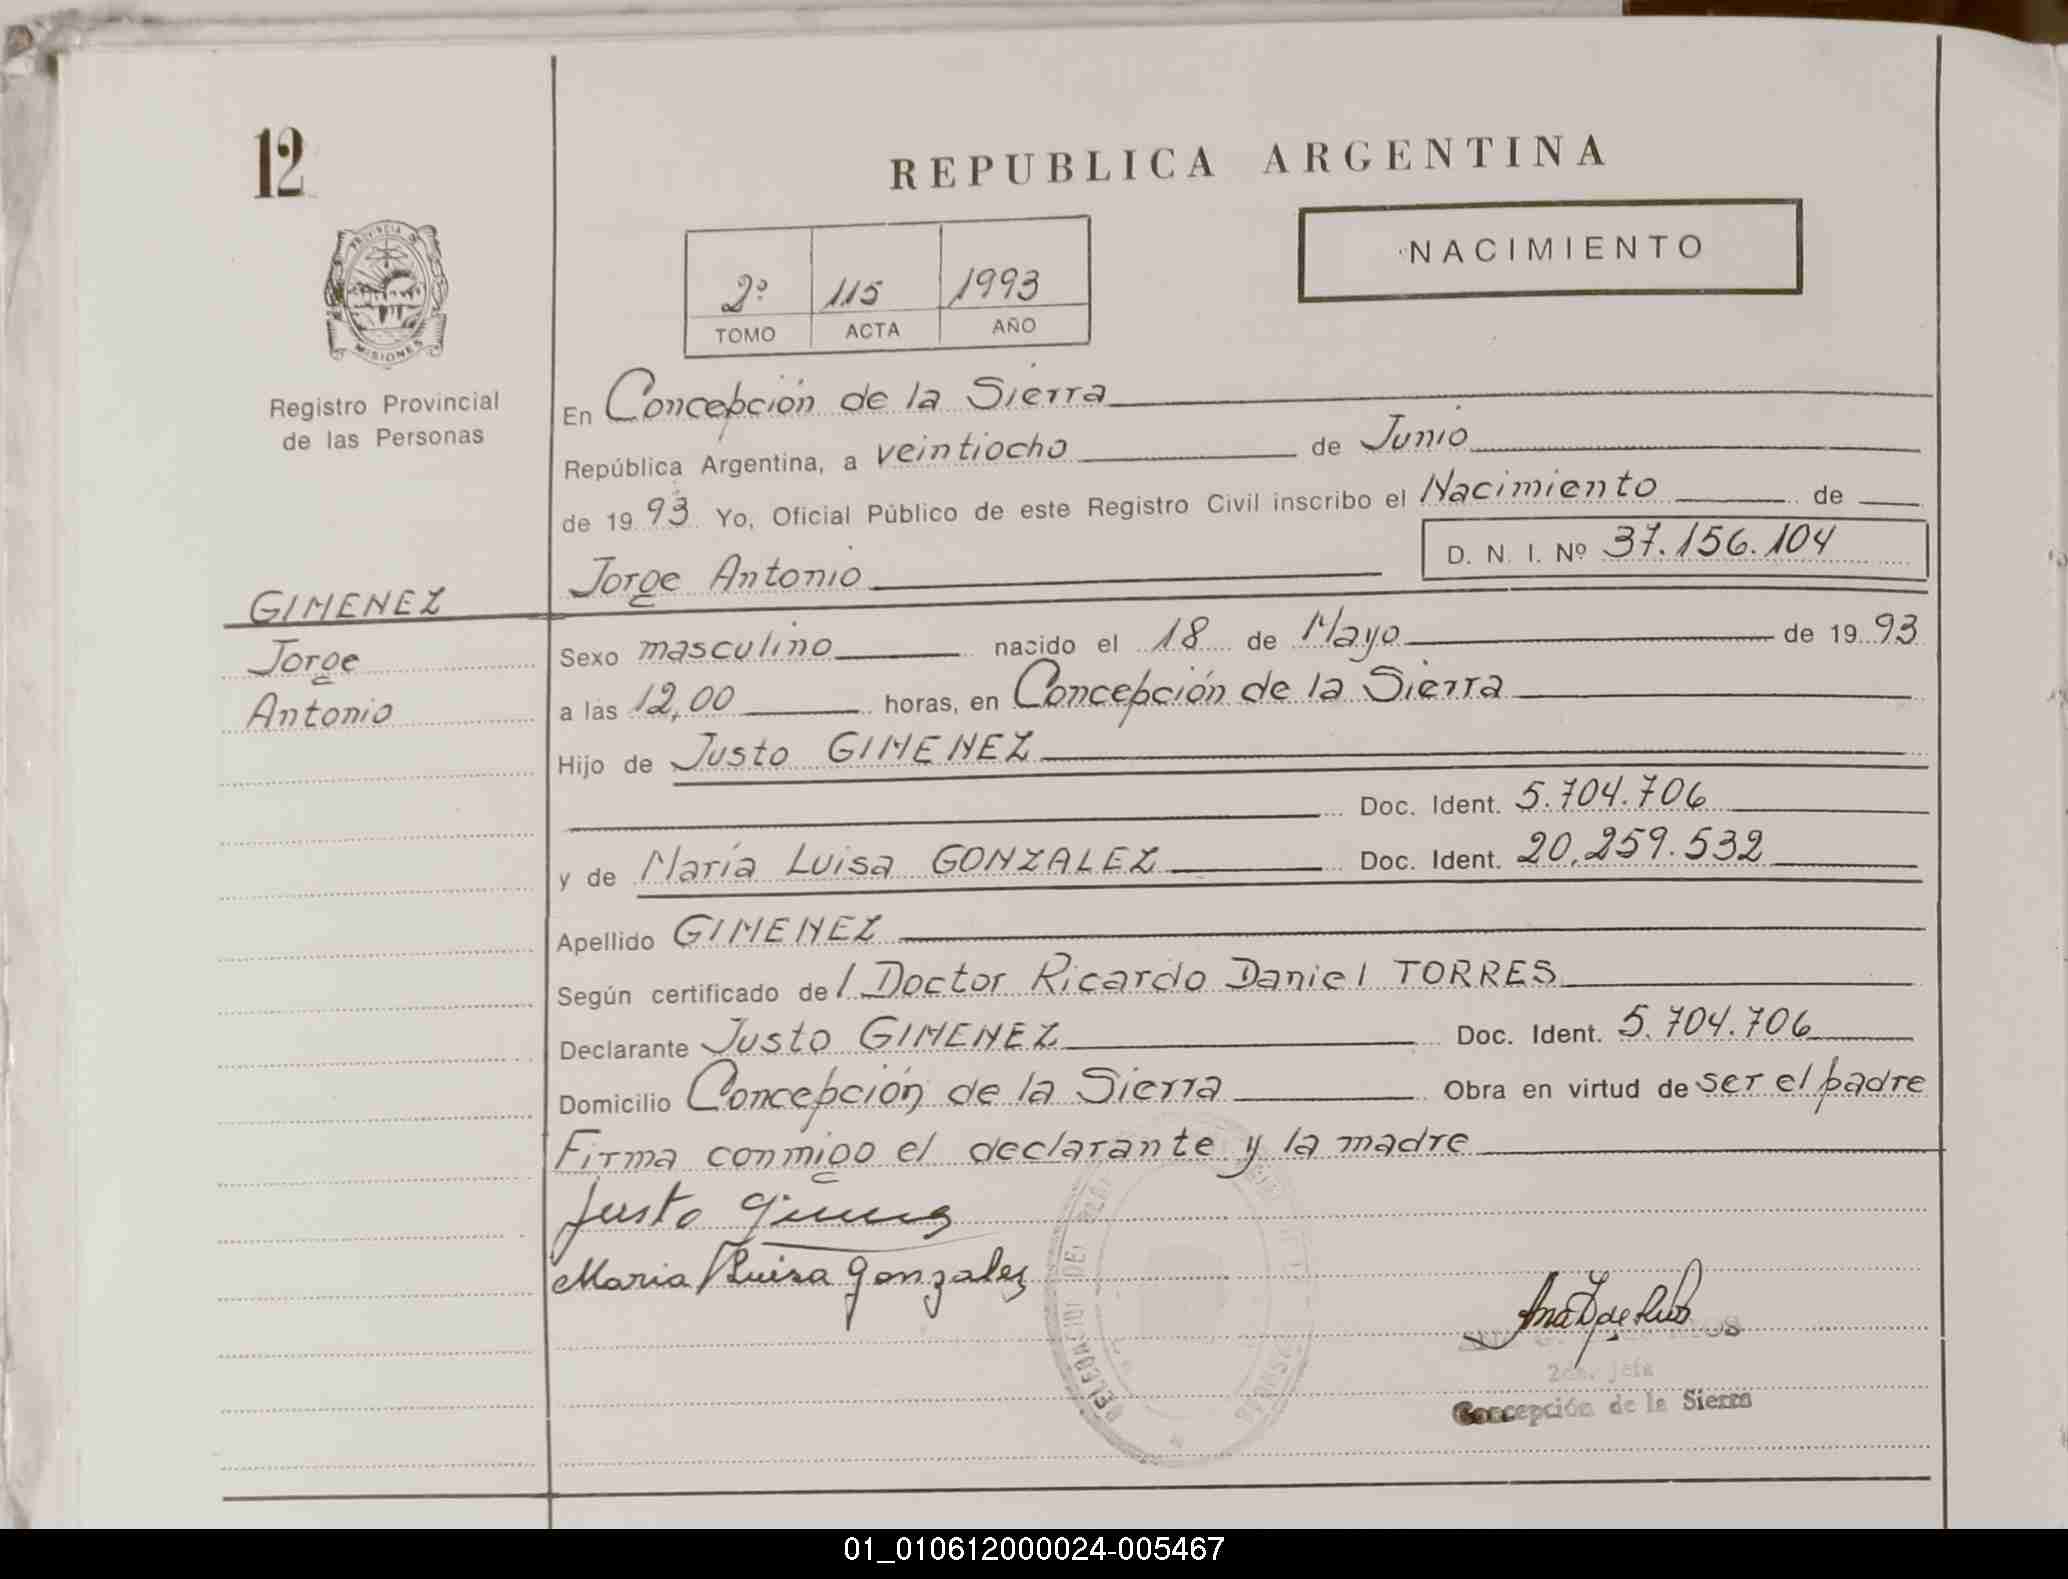 12
REPUBLICA ARGENTINA
PROVINCIA DE
MISIONES
NACIMIENTO
2º 115 1993
TOMO ACTA AÑO
Registro Provincial
de las Personas
En Concepción de la Sierra
República Argentina, a veintiocho de Junio
de 1993 Yo, Oficial Público de este Registro Civil inscribo el Nacimiento de
D. N. I. Nº 37.156.104
Jorge Antonio
GIMENEZ
Jorge
Antonio
Sexo masculino nacido el 18 de Mayo de 1993
a las 12,00 horas, en Concepción de la Sierra
Hijo de Justo GIMENEZ
Doc. Ident. 5.704.706
y de María Luisa GONZALEZ Doc. Ident. 20.259.532
Apellido GIMENEZ
Según certificado del Doctor Ricardo Daniel TORRES
Declarante Justo GIMENEZ Doc. Ident. 5.704.706
Domicilio Concepción de la Sierra Obra en virtud de ser el padre
Firma conmigo el declarante y la madre
Justo Gimenez
Maria Luisa Gonzalez
Concepción de la Sierra
01_010612000024-005467